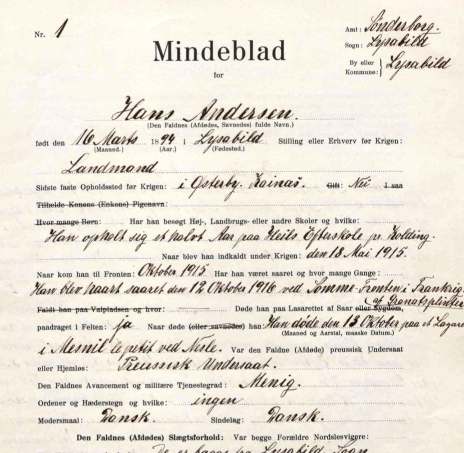 Nr. 1
Amt: Sönderborg.
Sogn: Lysabild
By eller Kommune: } Lysabild
Mindeblad
for
Hans Andersen.
(Den Faldnes (Afdødes, Savnedes) fulde Navn.)
født den 16 Marts 1894 i Lysabild Stilling eller Erhverv før Krigen:
(Maaned.) (Aar.) (Fødested.)
Landmand
Sidste faste Opholdssted før Krigen: i Østerby, Kainæs. Gift: Nei i saa
Tilfælde Konens (Enkens) Pigenavn
Hvor mange Børn: Har han besøgt Høj-, Landbrugs- eller andre Skoler og hvilke:
Han opholt sig et halvt Aar paa Heils Efterskole pr. Kolding.
Naar blev han indkaldt under Krigen: den 18 Mai 1915.
Naar kom han til Fronten: Oktober 1915. Har han været saaret og hvor mange Gange:
Han blev haart saaret den 12 Oktober 1916 ved Somme Fronten i Frankrig.
af Granatsplitter
Faldt han paa Valpladsen og hvor: Døde han paa Lazarettet af Saar eller Sygdom,
paadraget i Felten: ja Naar døde (eller savnedes) han: Han døde den 13 Oktober paa et Lazare
(Maaned og Aarstal, maaske Datum.)
i Mesnil le petit ved Nesle. Var den Faldne (Afdøde) preussisk Undersaat
eller Hjemløs: Preussisk Undersaat.
Den Faldnes Avancement og militære Tjenestegrad: Menig.
Ordener og Hæderstegn og hvilke: ingen
Modersmaal: Dansk. Sindelag: Dansk.
Den Faldnes (Afdødes) Slægtsforhold: Var begge Forældre Nordslesvigere:
Lysabild Sogn